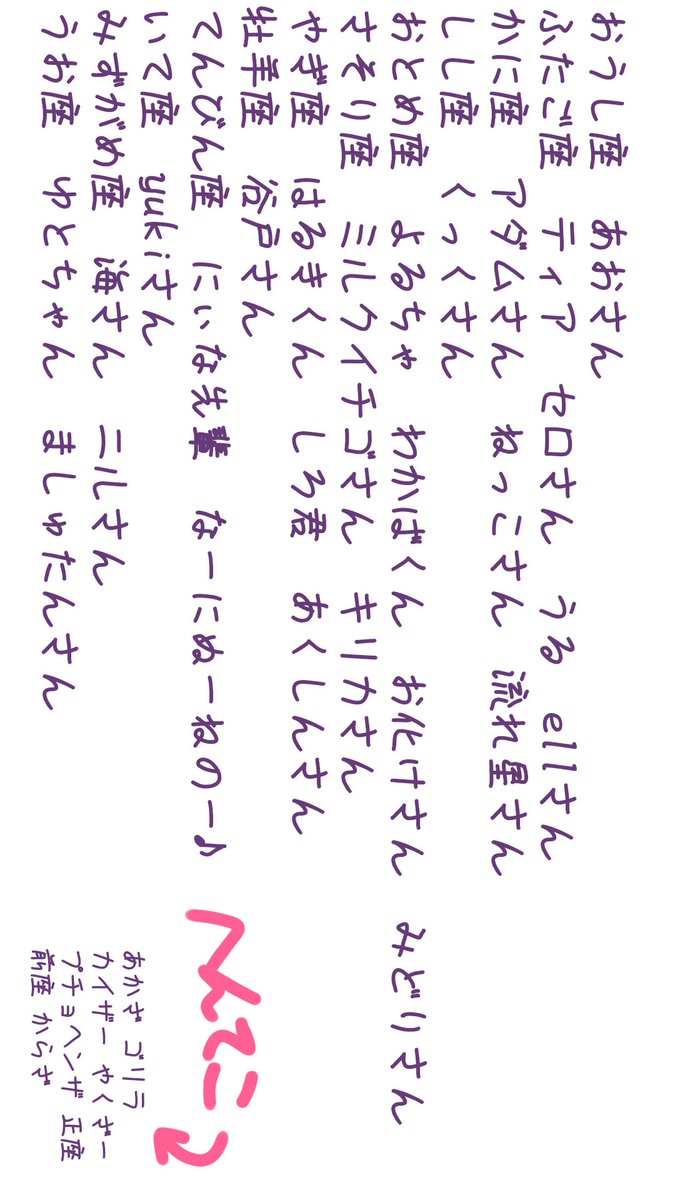 おうし座　あおさん
ふたご座　ティア　セロさん　うる　ellさん
かに座　アダムさん　ねっこさん　流れ星さん
しし座　くっくさん
おとめ座　よるちゃ　わかばくん　お化けさん　みどりさん
さそり座　ミルクイチゴさん　キリカさん
やぎ座　はるきくん　しろ君　あくしんさん
牡羊座　谷戸さん
てんびん座　にぃな先輩　なーにぬーねのー♪
いて座　yukiさん
みずがめ座　海さん　ニルさん
うお座　ゆとちゃん　ましゅたんさん
へんてこ
あかざ ゴリラ
カイザー やくざー
プチョヘンザ 正座
前座 からざ